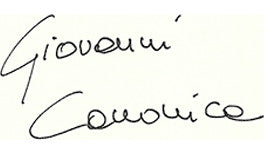 Giovanni
Canonica